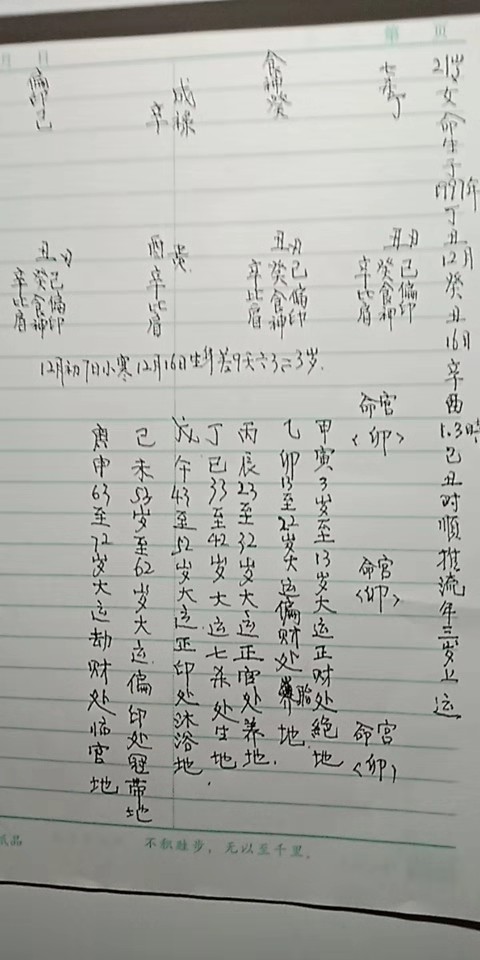 21岁女命生于1997年丁丑12月癸丑16日辛酉1.3时己丑时顺推流年三岁上运
七杀丁
食神癸
辛
偏印己
丑
己偏印
癸食神
辛比肩
丑
己偏印
癸食神
辛比肩
酉
辛比肩
丑
己偏印
癸食神
辛比肩
12月初7日小寒12月16日生
命宫
<卯>
命宫
<卯>
命宫
<卯>
甲寅3岁至13岁大运正财处绝地
乙卯13至22岁大运偏财处胎地.
丙辰23至32岁大运正官处养地.
丁巳33至42岁大运七杀处生地.
戊午43至52岁大运正印处沐浴地
己未53岁至62岁大运偏印处冠带地
庚申63至72岁大运劫财处临官地
第 页
月 日
纸品
不积跬步，无以至千里.